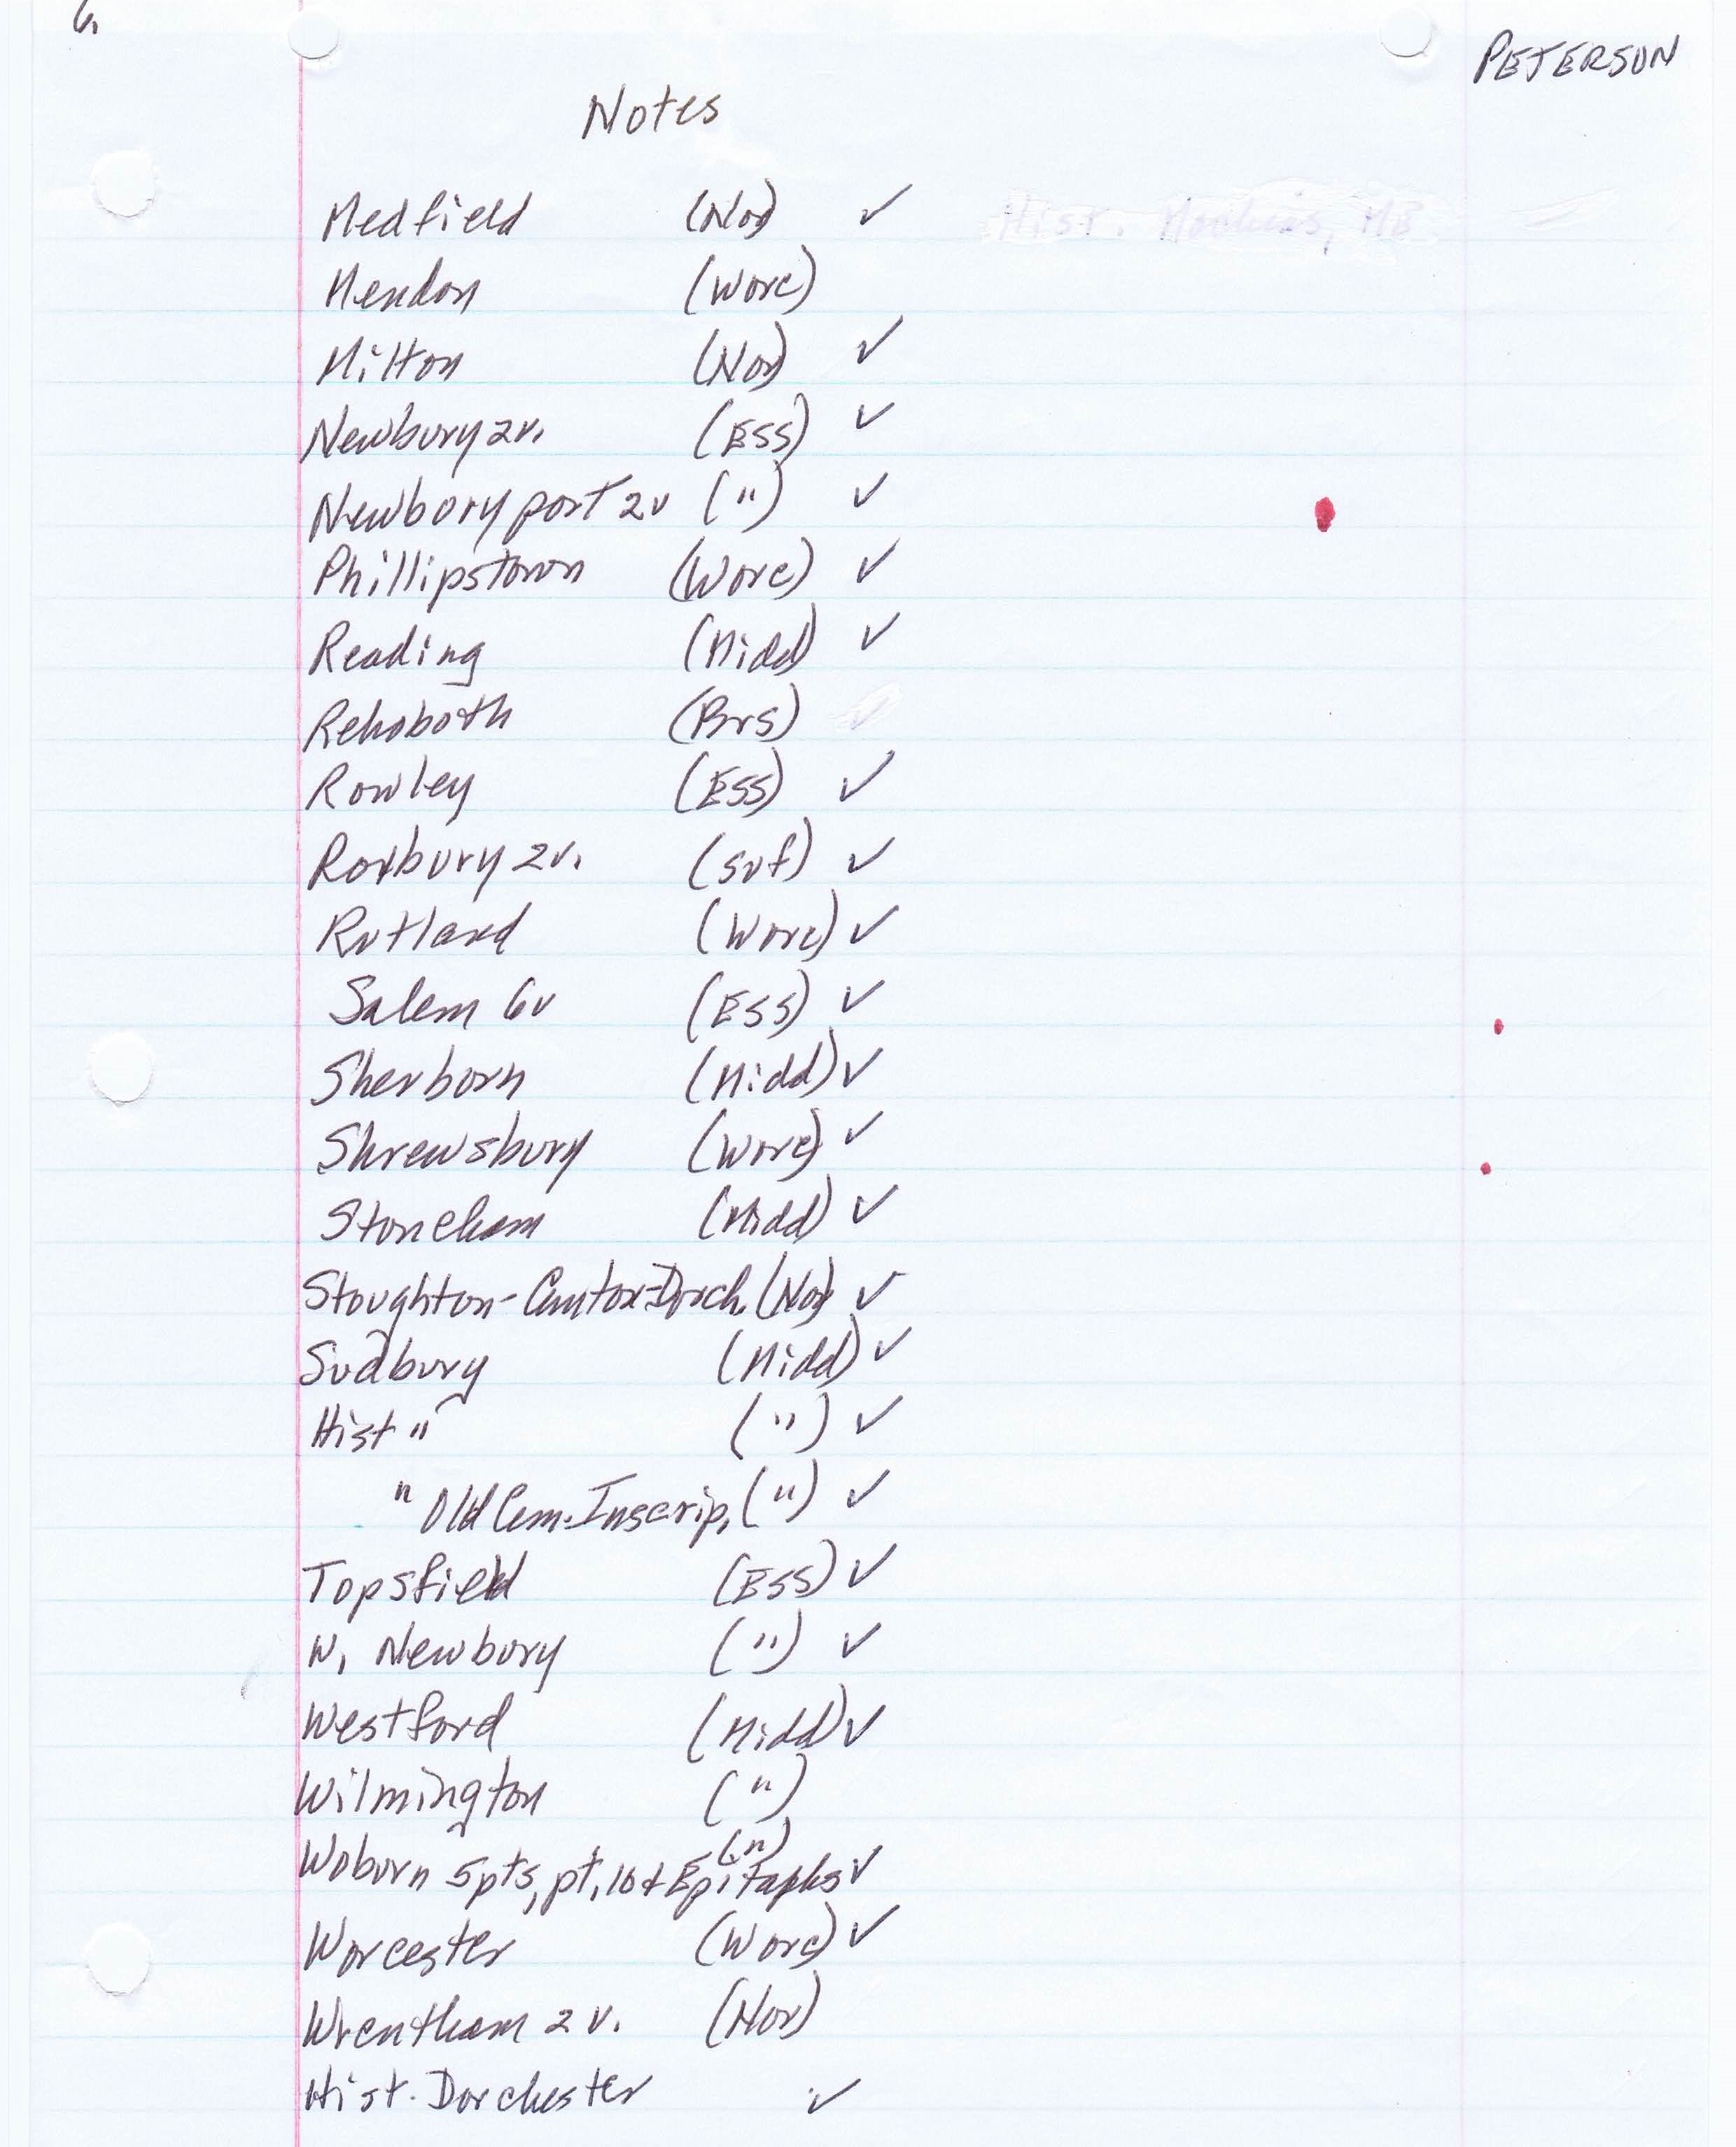 6.
PETERSON
Notes
Medfield (Nor) ✓
Mendon (Worc)
Milton (Nor) ✓
Newbury 2v. (Ess) ✓
Newburyport 2v (") ✓
Phillipstown (Worc) ✓
Reading (Midd) ✓
Rehoboth (Brs)
Rowley (Ess) ✓
Roxbury 2v. (Suf) ✓
Rutland (Worc) ✓
Salem 6v (Ess) ✓
Sherborn (Midd) ✓
Shrewsbury (Worc) ✓
Stoneham (Midd) ✓
Stoughton-Canton-Dorch. (Nor) ✓
Sudbury (Midd) ✓
Hist " (") ✓
" Old Cem. Inscrip. (") ✓
Topsfield (Ess) ✓
W. Newbury (") ✓
Westford (Midd) ✓
Wilmington (")
(")
Woburn 5pts, pt. 10 + Epitaphs ✓
Worcester (Worc) ✓
Wrentham 2 v. (Nor)
Hist. Dorchester ✓